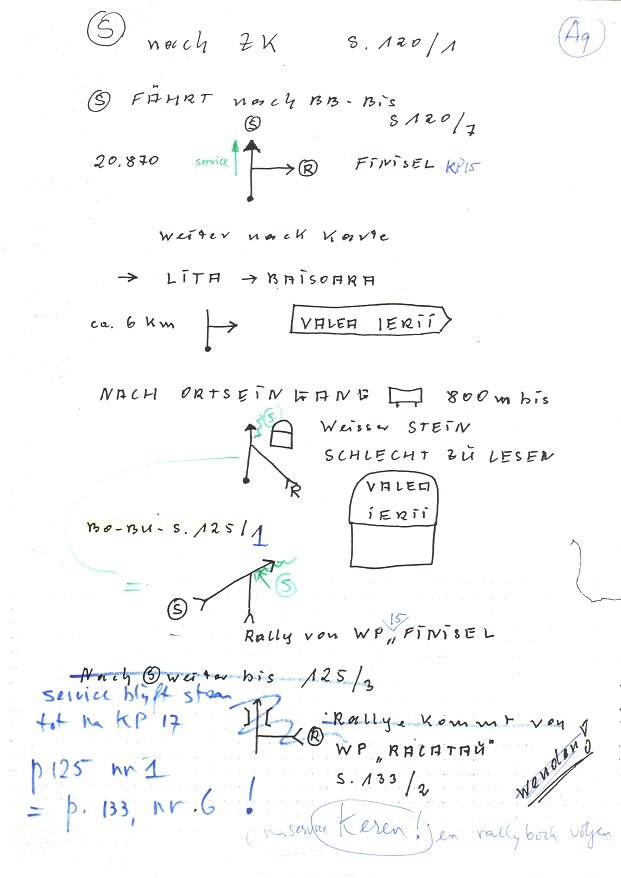 Ⓢ nach ZK S. 120/1
A9
Ⓢ FÄHRT nach BB-Bis
S 120/7
Ⓢ
20.870 service Ⓡ FINISEL KP15
Weiter nach Karte
→ LITA → BAISOARA
ca. 6 Km VALEA IERII
NACH ORTSEINGANG 800m bis
Ⓢ Weisser STEIN
SCHLECHT ZU LESEN
R
VALEA
IERII
BO-BU-S. 125/1
=
Ⓢ Ⓢ
15
Rally von WP „FINISEL
Nach Ⓢ weiter bis 125/3
service blijft staan
tot na KP 17
Rallye kommt von
Ⓡ WP „RACATAU"
S. 133/2
wenden!
p 125 nr 1
= p. 133, nr. 6 !
service Keren! en rallyboek volgen